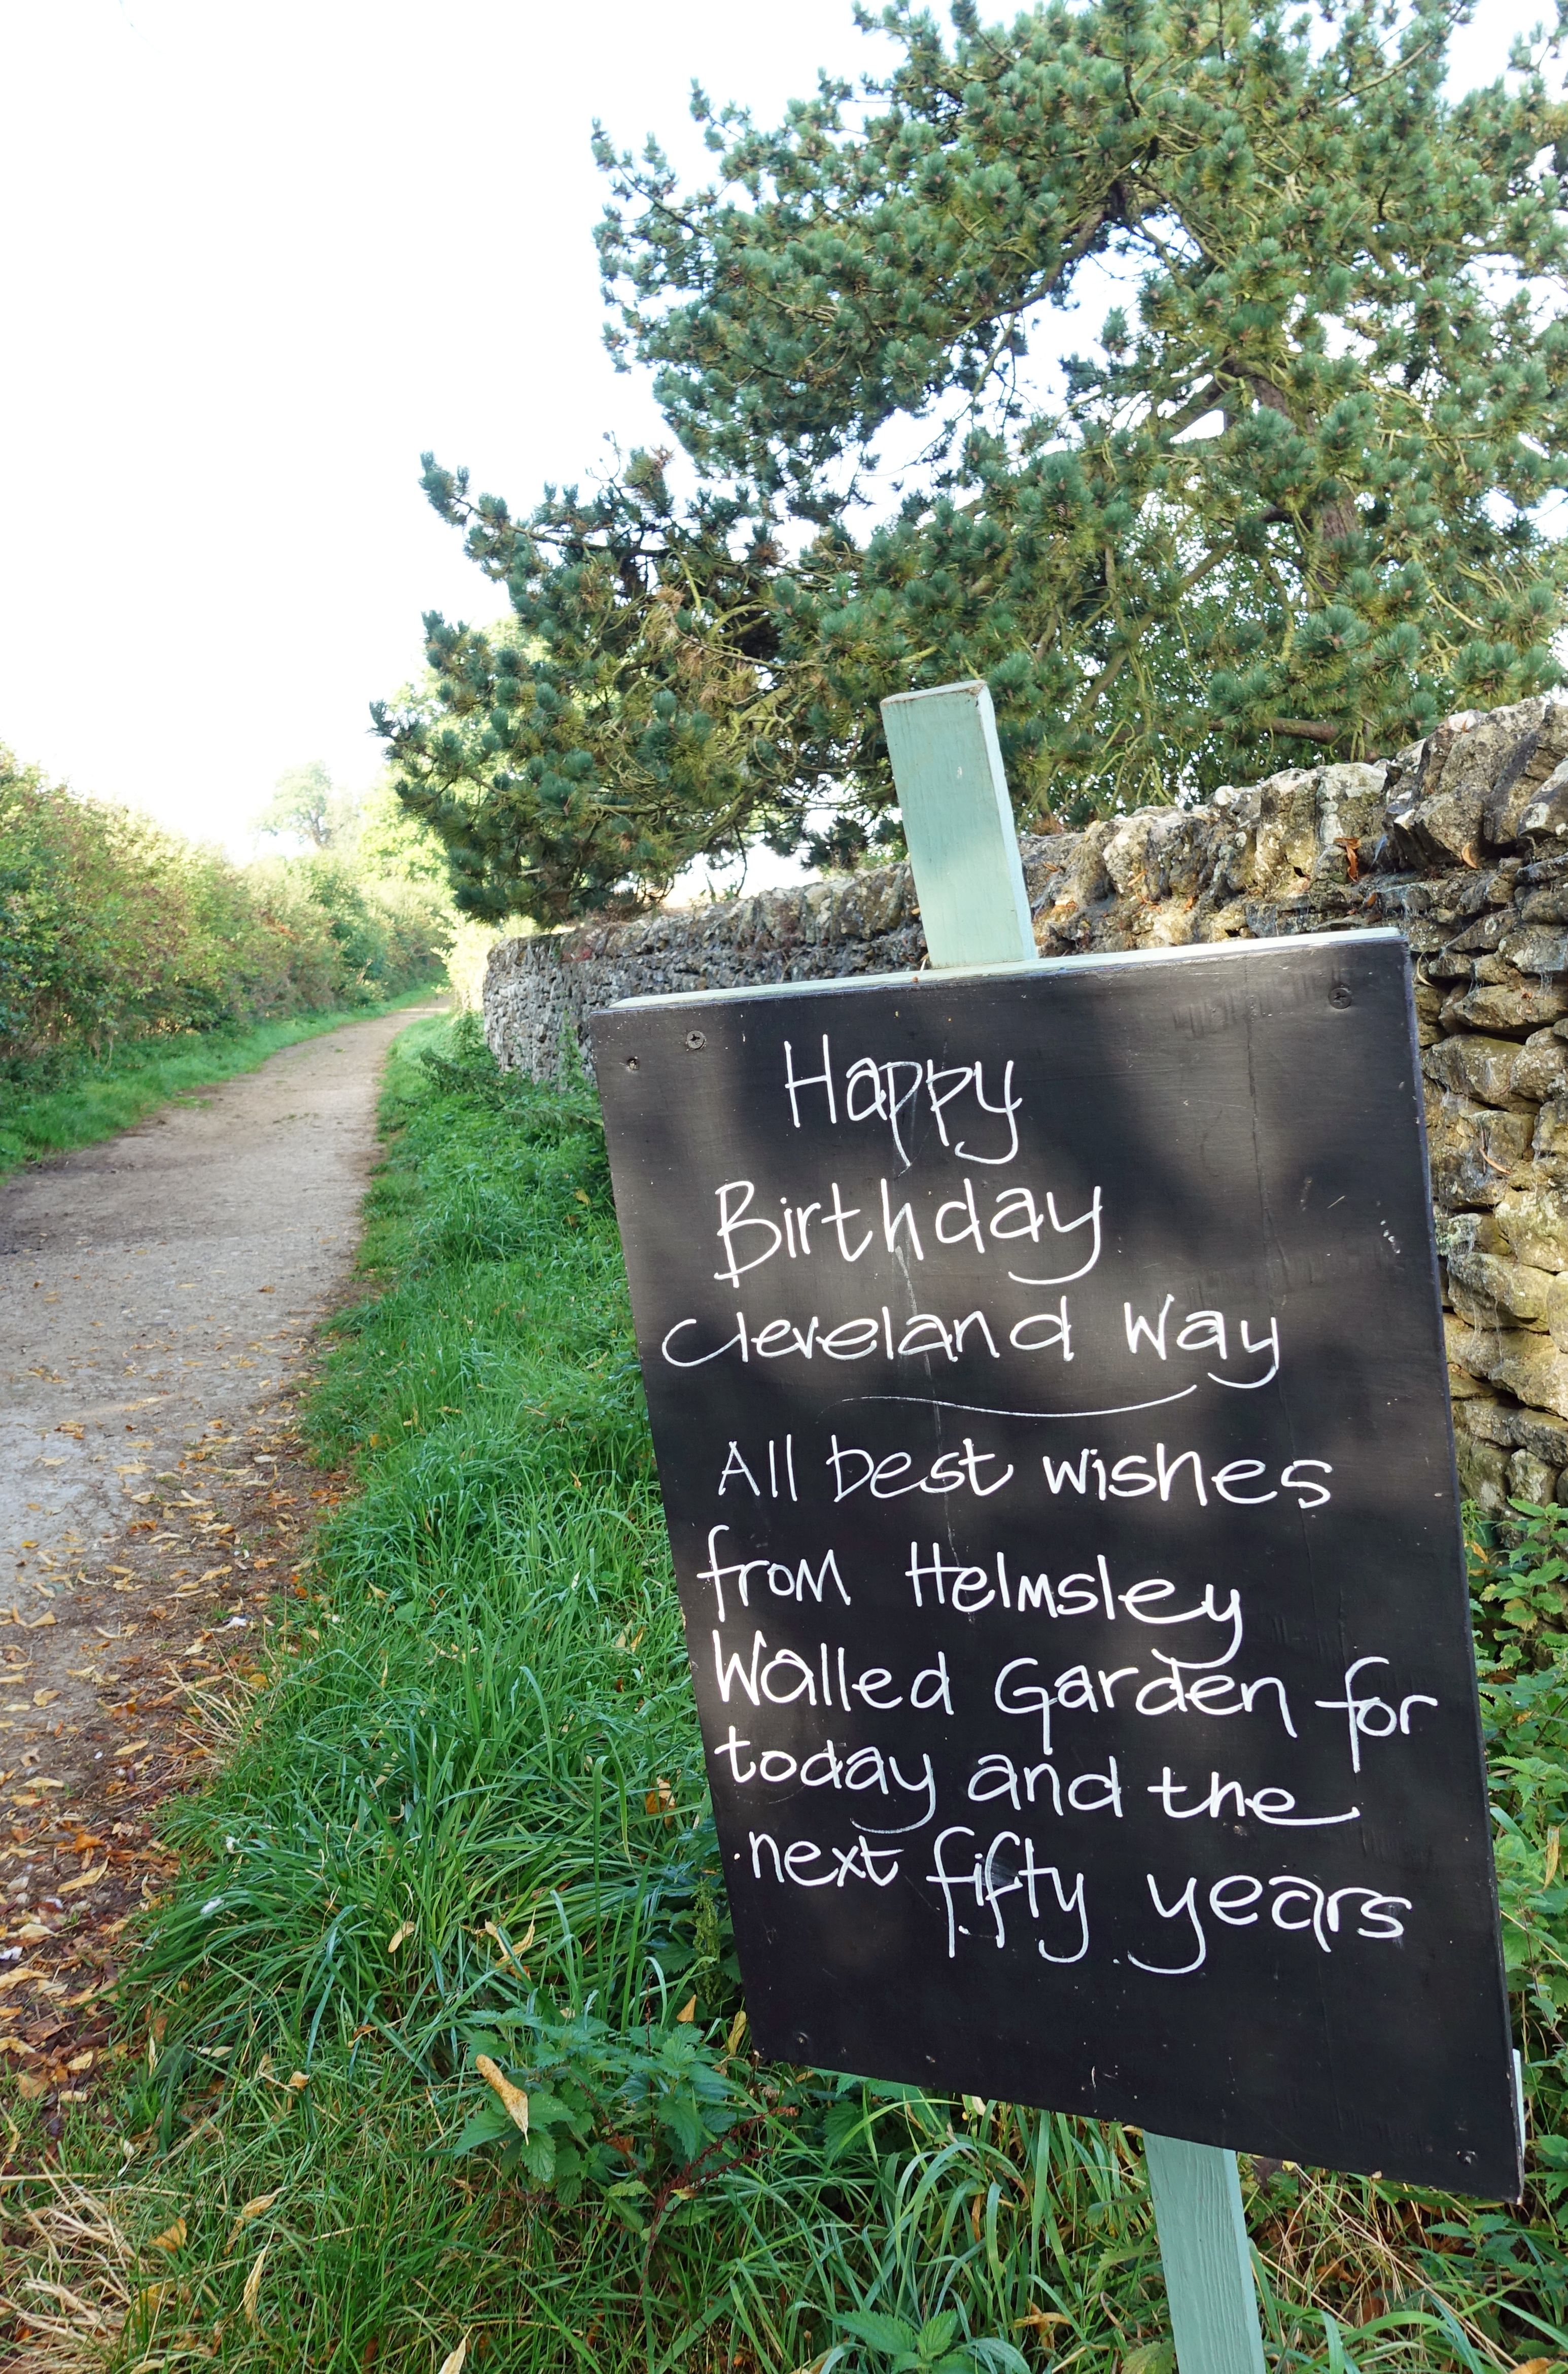 Happy
Birthday
Cleveland Way
All best wishes
from Helmsley
Walled Garden for
today and the
next fifty years